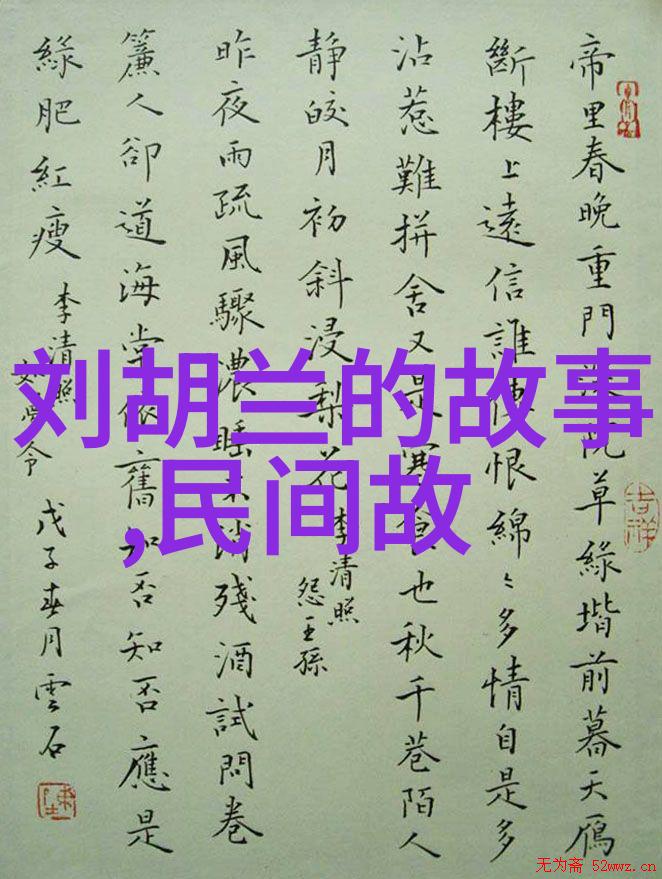 帝里春晚重門深院草綠堦前暮天鴈
斷樓上遠信誰傳恨綿〻多情自是多
沾惹難拼舍又是寒食也秋千巷陌人
靜皎月初斜浸梨花 李清照
怨王孫
昨夜雨疏風驟濃睡不消殘酒試問卷
簾人卻道海棠依舊知否知否應是
綠肥紅瘦 李清照
如夢令 戊子春月雲石
吉祥
刘胡兰的故事
,民间故
无为斋 52wwz.cn